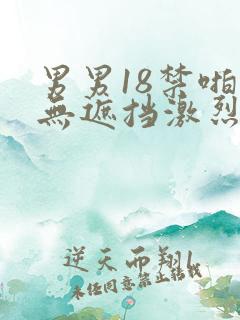 男男18禁啪
無遮挡激烈
逆天而翔
未经同意禁止转载